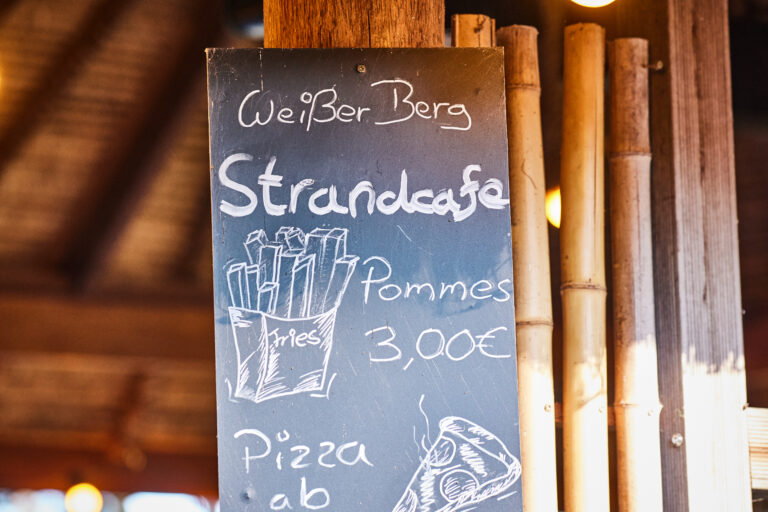 Weißer Berg
Strandcafe
Pommes
fries
3,00€
Pizza
ab